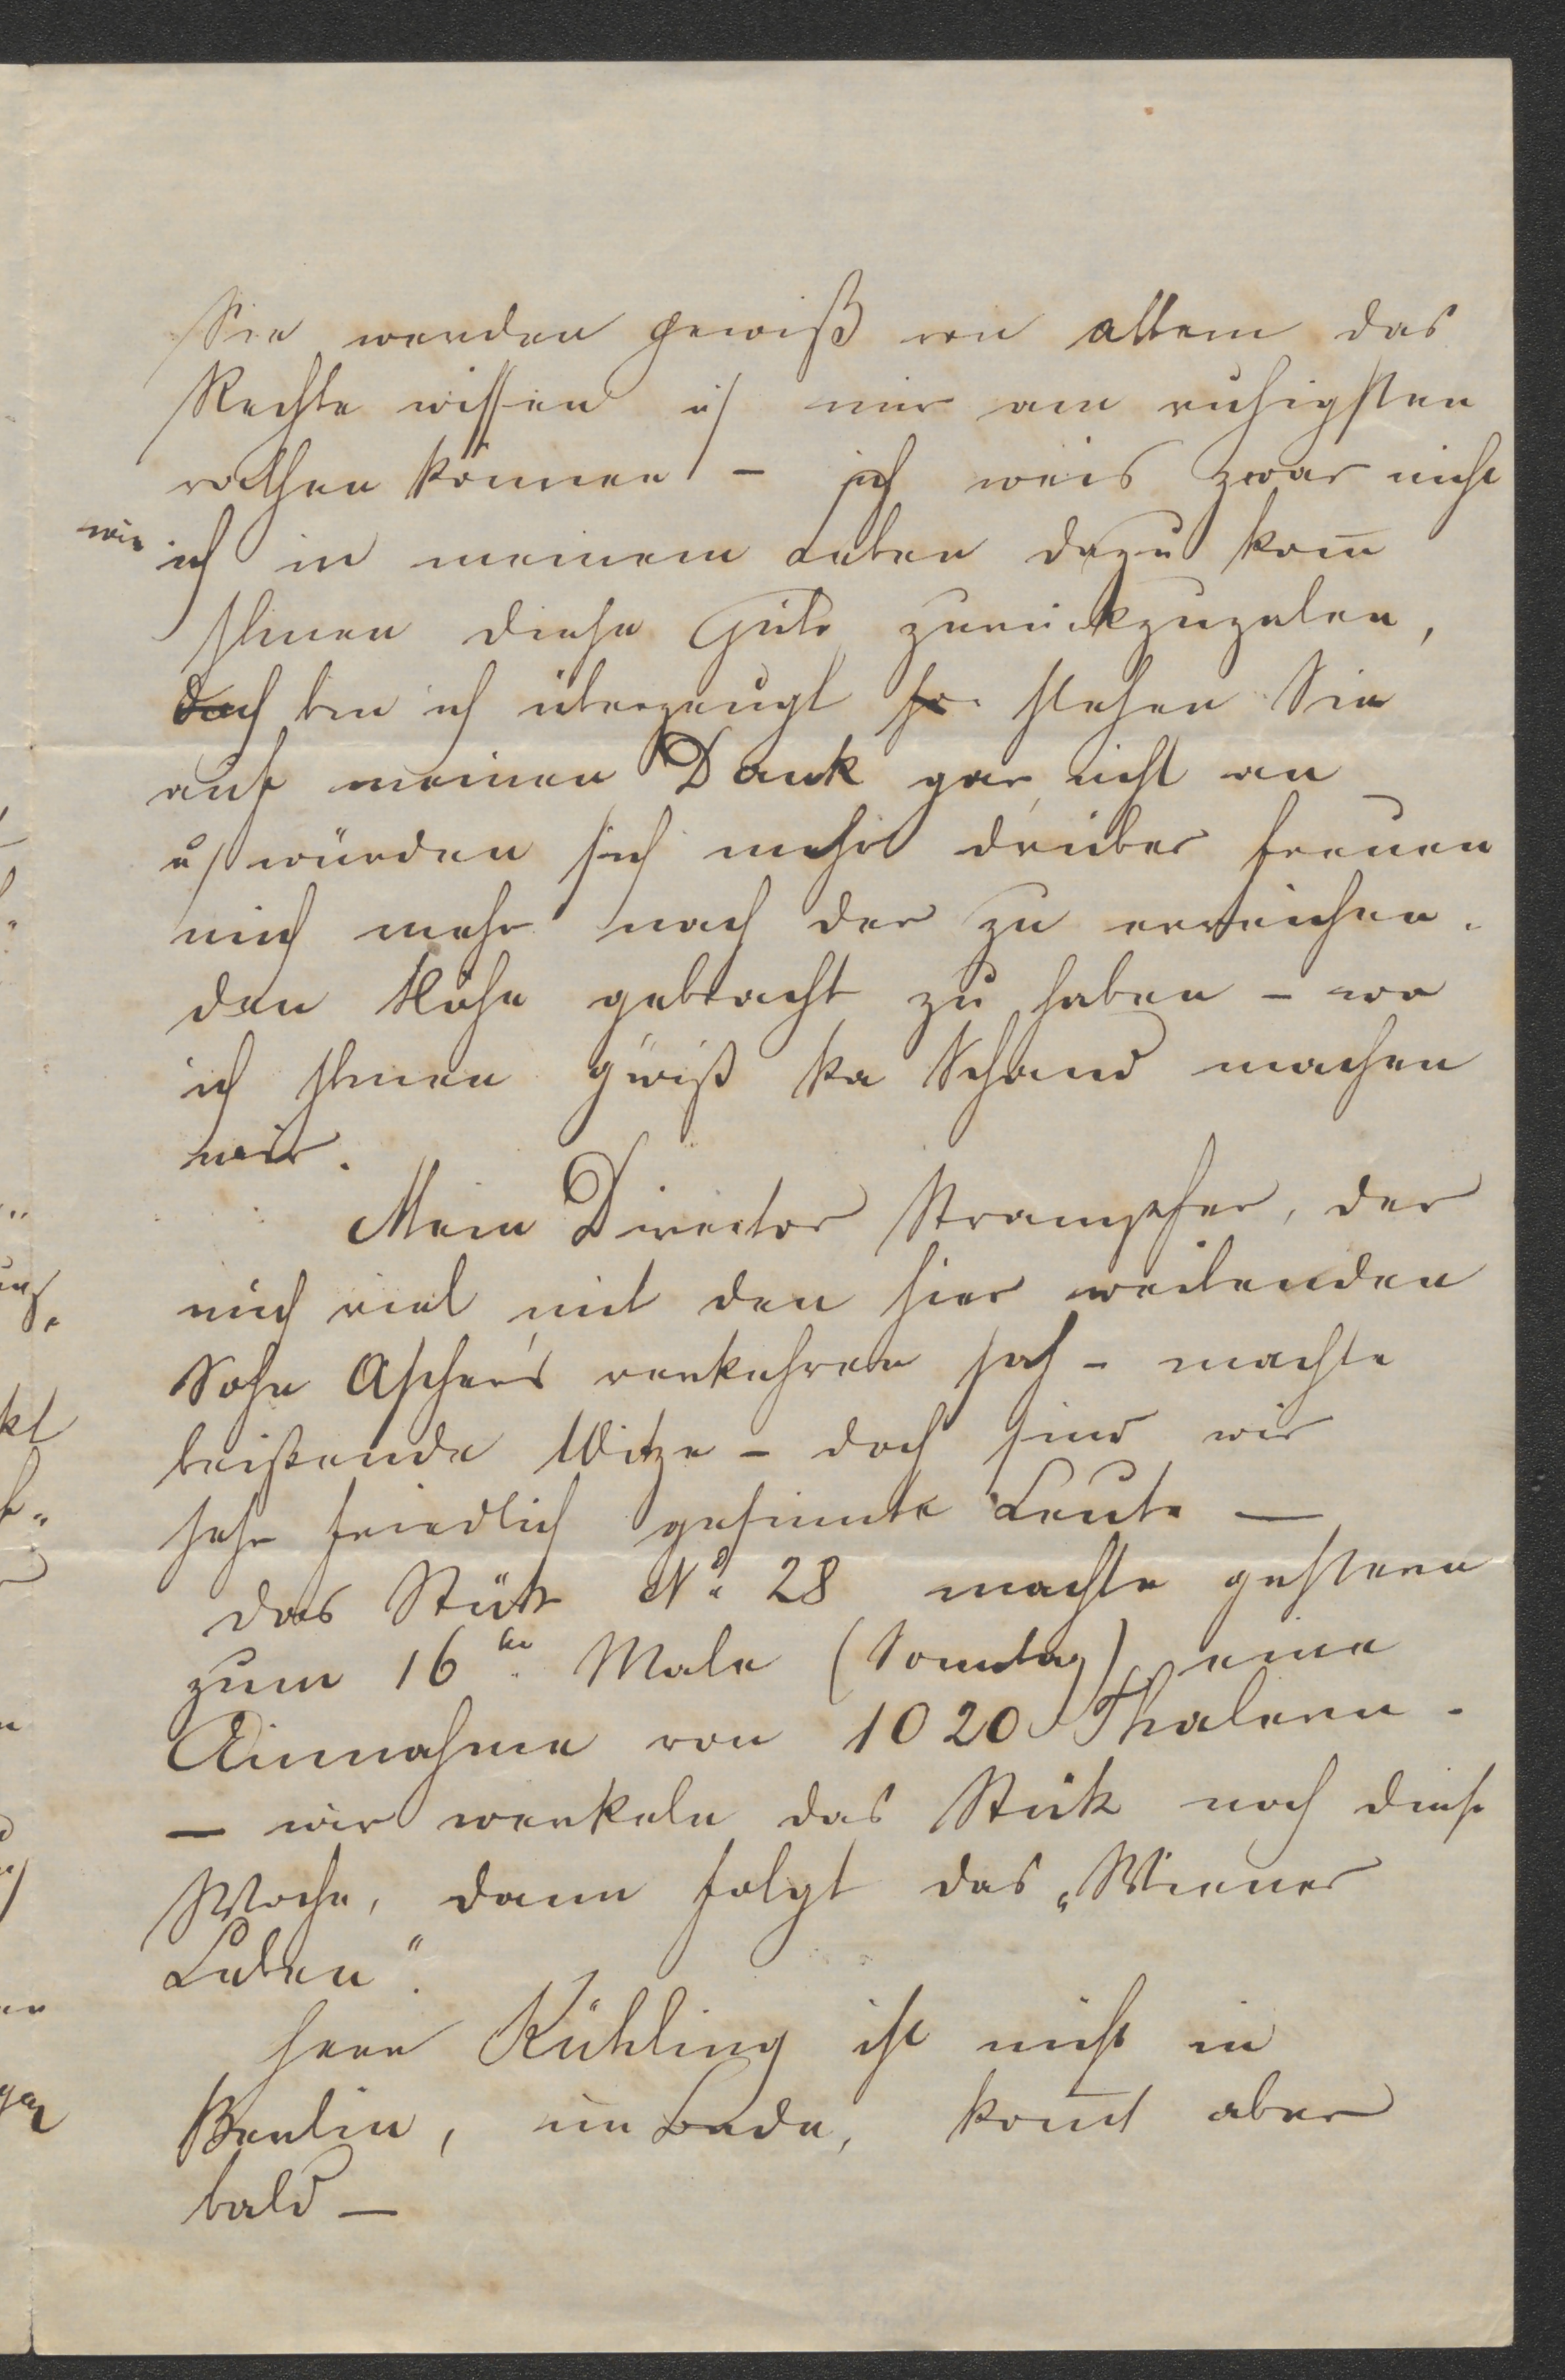 Sie werden gewiß von allem das
Rechte wissen u/ mir am ruhigsten
rathen können – ich weis zwar nicht
wie ich in meinem Leben dazu kom̄
Ihnen diese Güte zurückzuzalen,
doch bin ich überzeugt stehen Sie
auf meinen Dank gar nicht an
u/ würden sich mehr drüber freuen
mich mehr nach der zu erreichen-
den Höhe gebracht zu haben – wo
ich Ihnen g'wiß ka Schand machen
wir.
Mein Director Strampfer, der
mich viel mit den hier weilenden
Sohn Ascher's verkehren sah – machte
beißende Witze – doch sind wir
sehr friedlich gesinnte Leute —
das Stük No 28 machte gestern
zum 16ten Male (Sonntag) eine
Einnahme von 1020 Thalern.
— wir werkeln das Stük noch diese
Woche, dann folgt das „Wiener
Leben".
Herr Kühling ist nicht in
Berlin, im Bade, kom̄t aber
bald —